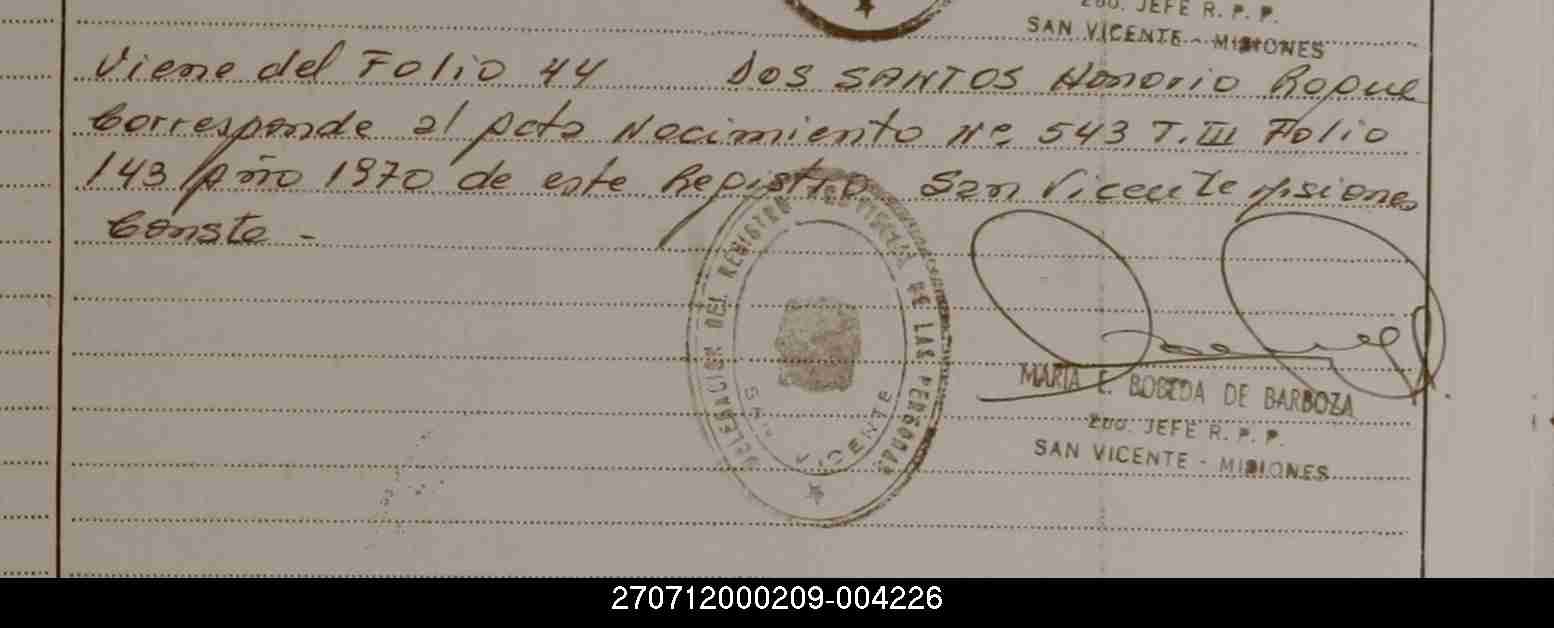 2do. JEFE R. P. P.
SAN VICENTE - MISIONES
Viene del Folio 44 DOS SANTOS Honorio Roque
Corresponde al Acta Nacimiento Nº 543 T. III Folio
143 Año 1970 de este Registro San Vicente Misiones
Conste -
DELEGACION DEL REGISTRO DE LAS PERSONAS
SAN VICENTE
MARIA E. BOBEDA DE BARBOZA
2do. JEFE R. P. P.
SAN VICENTE - MISIONES
270712000209-004226